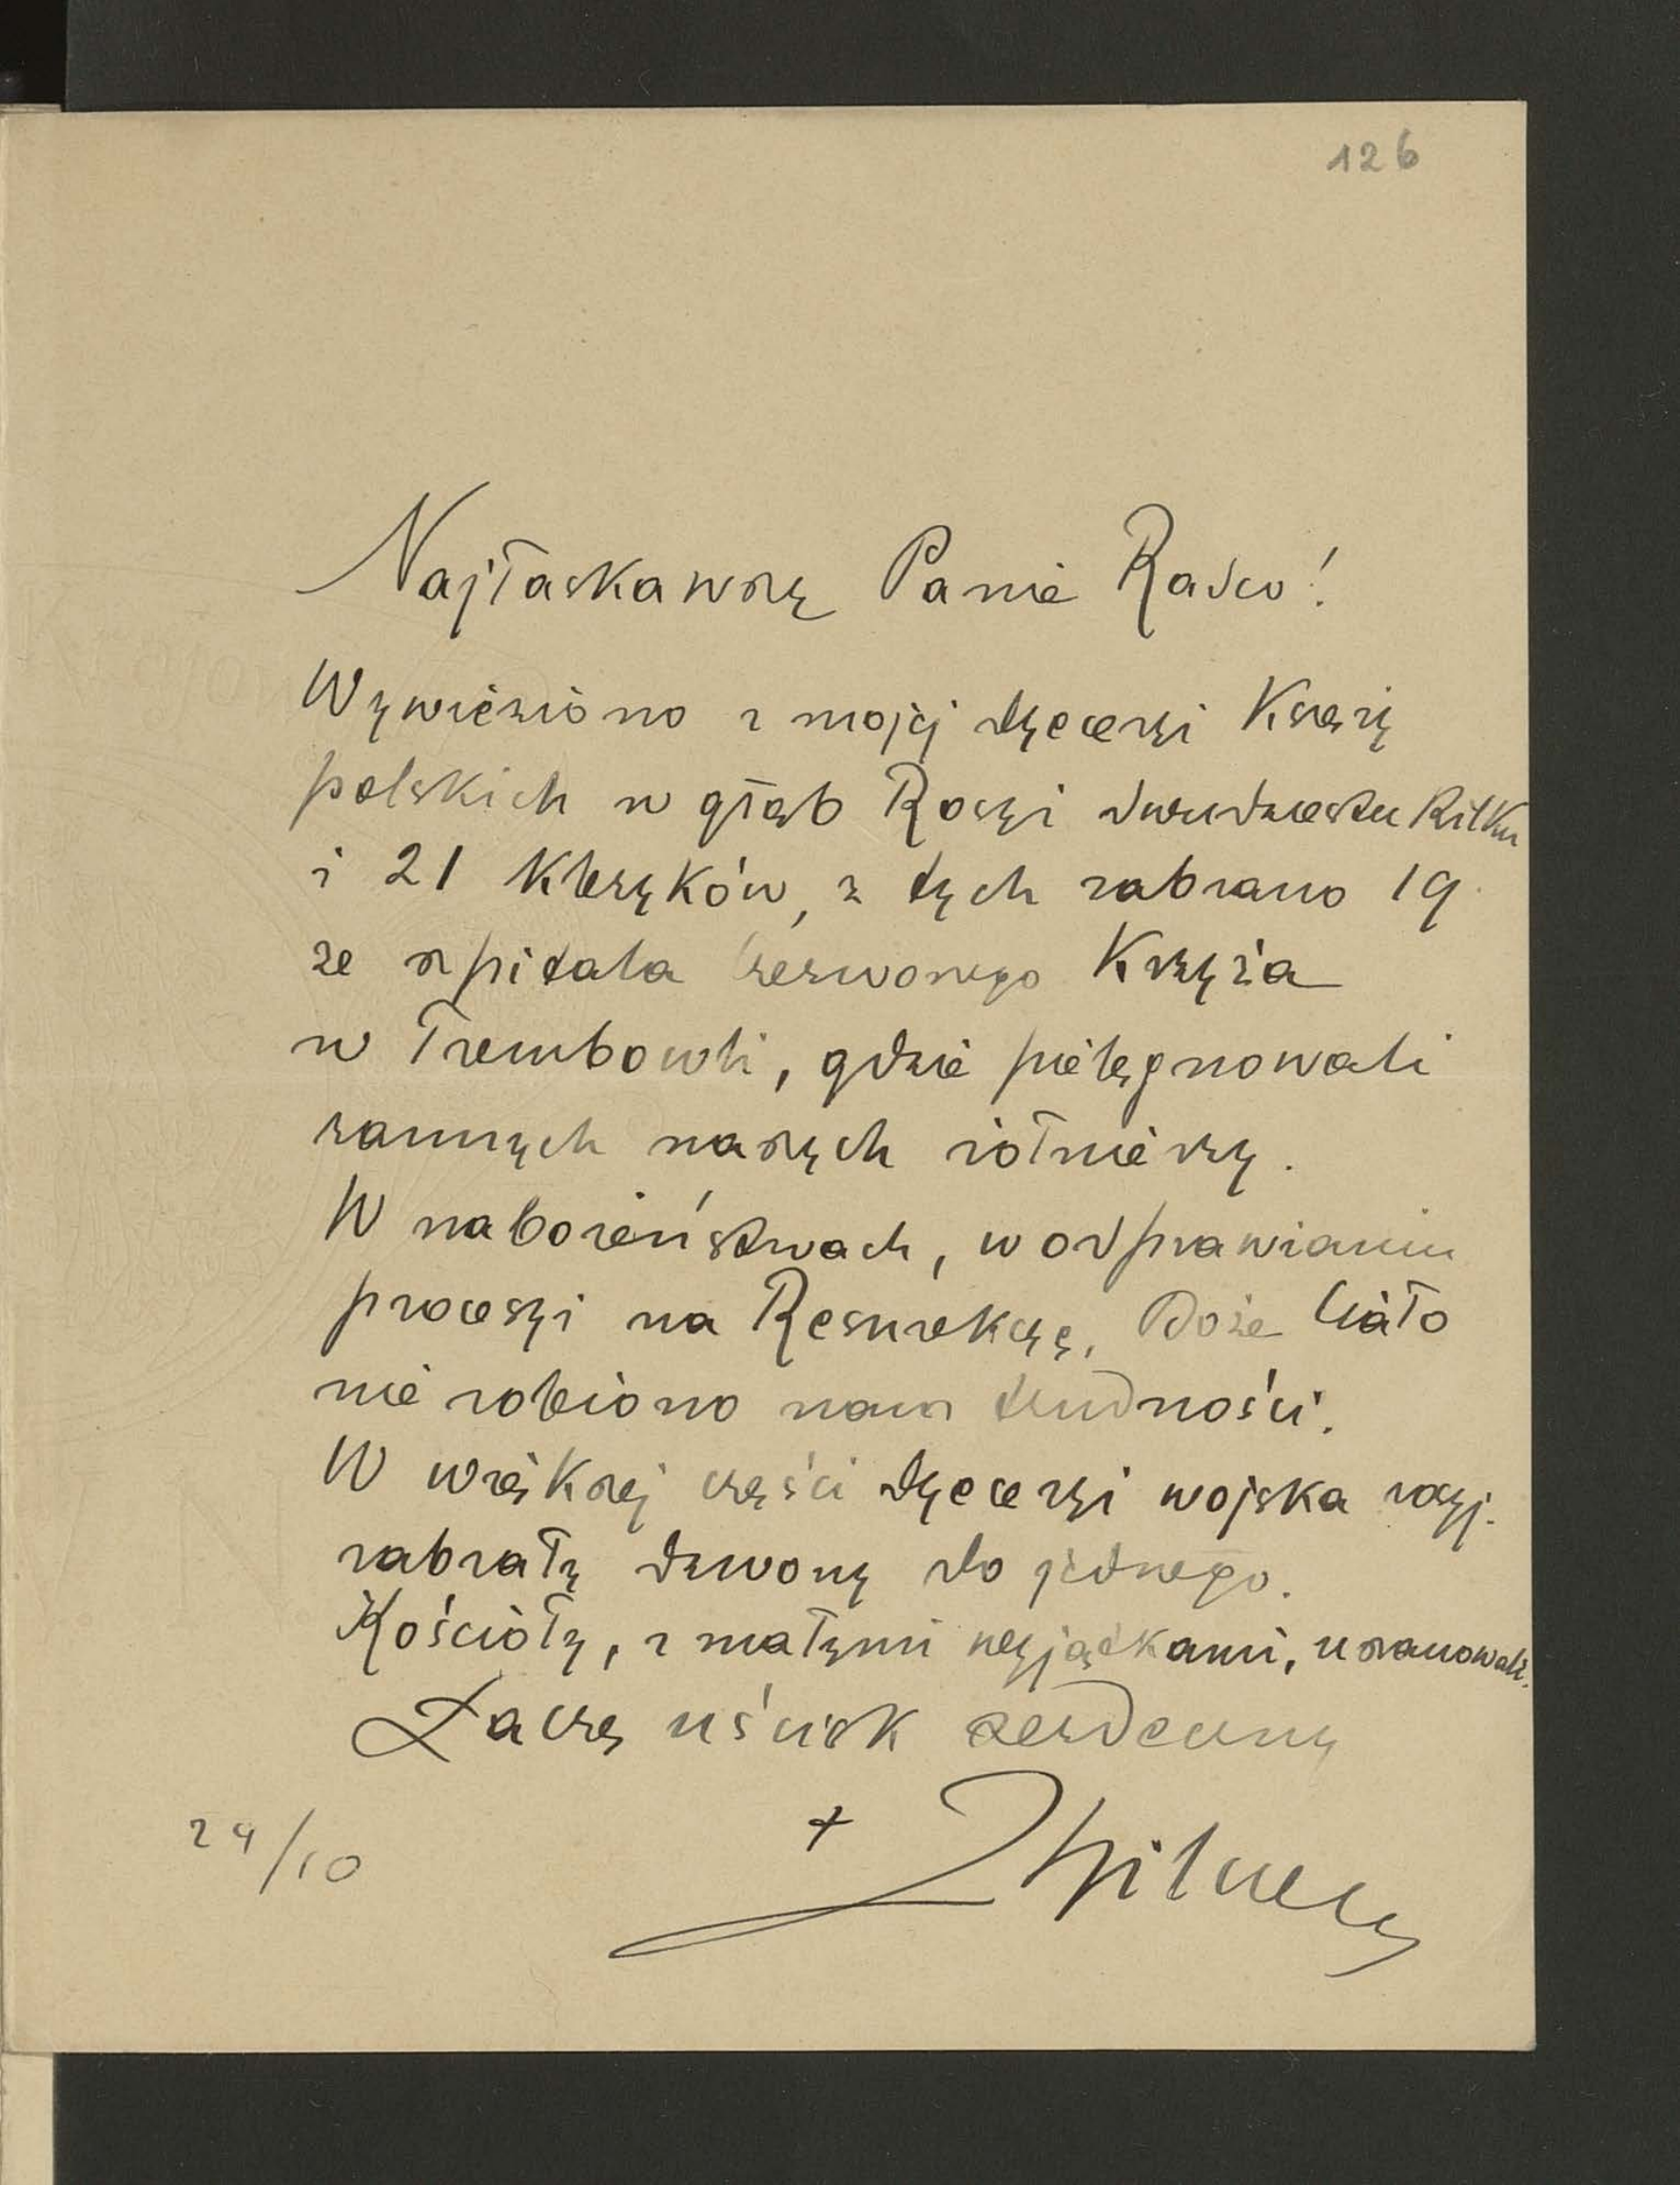 126
Najłaskawszy Panie Radco!
Wywieziono z mojej dyecezyi Księży
polskich w głąb Rosyi dwudziestu Kilku
i 21 Kleryków, z tych zabrano 19
ze szpitala Czerwonego Krzyża
w Trembowli, gdzie pielęgnowali
rannych naszych żołnierzy.
W nabożeństwach, w odprawianiu
procesyi na Resurekcyę, Boże Ciało
nie robiono nam trudności.
W większej części dyecezyi wojska rosyj.
zabrały dzwony do jednego.
Kościoły, z małymi wyjątkami, uszanowali.
Łączę uścisk serdeczny
29/10
+